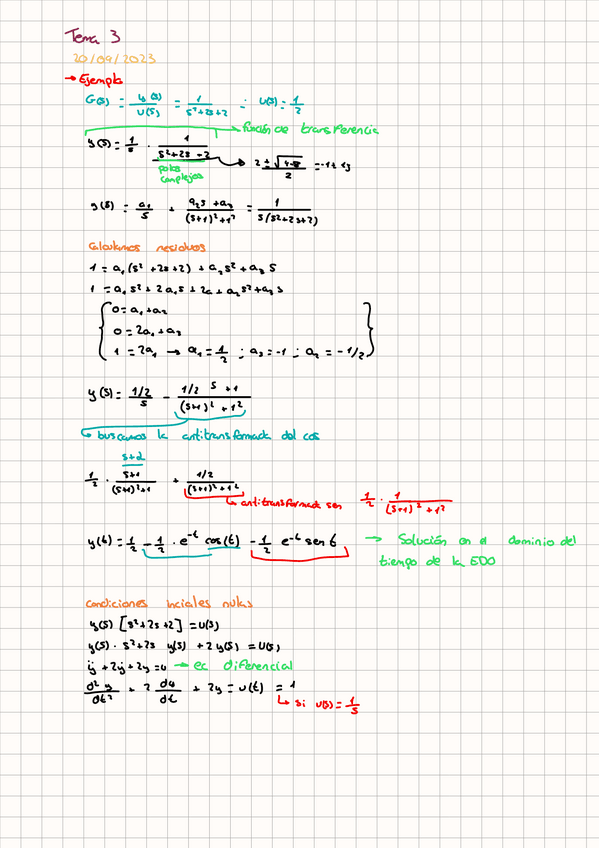 Tema 3
20/09/2023
→ Ejemplo
G(s) = y(s)/U(s) = 1/(s²+2s+2) ; U(s) = 1/2
función de transferencia
y(s) = 1/s · 1/(s²+2s+2) → (2 ± √(4-8))/2 = -1 ± 1j
polos complejos
y(s) = a₁/s + (a₂s + a₃)/((s+1)²+1²) = 1/(s(s²+2s+2))
Calculamos residuos
1 = a₁(s² + 2s + 2) + a₂s² + a₃ s
1 = a₁s² + 2a₁s + 2a + a₂s² + a₃s
0 = a₁ + a₂
0 = 2a₁ + a₃
1 = 2a₁ → a₁ = 1/2 ; a₃ = -1 ; a₂ = -1/2
y(s) = (1/2)/s - (1/2 s + 1)/((s+1)² + 1²)
buscamos la antitransformada del cos
s+α
1/2 · (s+1)/((s+1)²+1) + (1/2)/((s+1)²+1²)
antitransformada sen 1/2 · 1/((s+1)² + 1²)
y(t) = 1/2 - 1/2 · e^-t cos(t) - 1/2 e^-t sen t → Solución en el dominio del
tiempo de la EDO
Condiciones iniciales nulas
y(s) [s² + 2s + 2] = U(s)
y(s) · s² + 2s y(s) + 2 y(s) = U(s)
ÿ + 2ẏ + 2y = u → ec diferencial
d²y/dt² + 2 dy/dt + 2y = u(t) = 1
si U(s) = 1/s